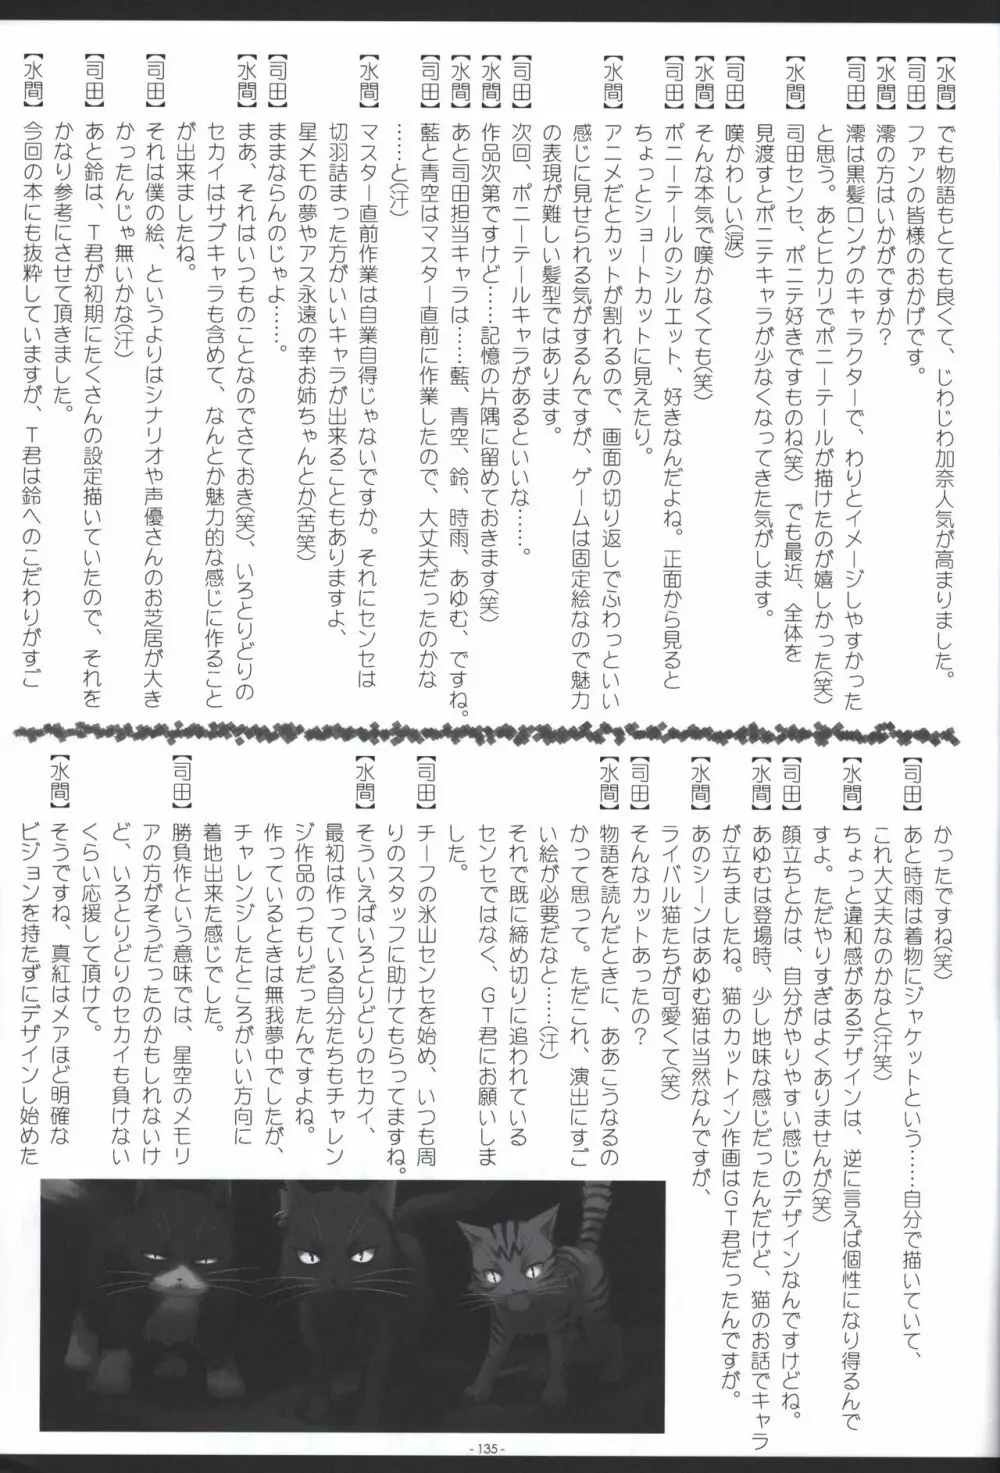 【水間】でも物語もとても良くて、じわじわ加奈人気が高まりました。
【司田】ファンの皆様のおかげです。
【水間】澪の方はいかがですか?
【司田】澪は黒髪ロングのキャラクターで、わりとイメージしやすかった
と思う。あとヒカリでポニーテールが描けたのが嬉しかった(笑)
【水間】司田センセ、ポニテ好きですものね(笑) でも最近、全体を
見渡すとポニテキャラが少なくなってきた気がします。
【司田】嘆かわしい(涙)
【水間】そんな本気で嘆かなくても(笑)
【司田】ポニーテールのシルエット、好きなんだよね。正面から見ると
ちょっとショートカットに見えたり。
【水間】アニメだとカットが割れるので、画面の切り返しでふわっといい
感じに見せられる気がするんですが、ゲームは固定絵なので魅力
の表現が難しい髪型ではあります。
【司田】次回、ポニーテールキャラがあるといいな……。
【水間】作品次第ですけど……記憶の片隅に留めておきます(笑)
【水間】あと司田担当キャラは……藍、青空、鈴、時雨、あゆむ、ですね。
【司田】藍と青空はマスター直前に作業したので、大丈夫だったのかな
……と(汗)
【水間】マスター直前作業は自業自得じゃないですか。それにセンセは
切羽詰まった方がいいキャラが出来ることもありますよ、
星メモの夢やアス永遠の幸お姉ちゃんとか(苦笑)
【司田】ままならんのじゃよ……。
【水間】まあ、それはいつものことなのでさておき(笑)、いろとりどりの
セカイはサブキャラも含めて、なんとか魅力的な感じに作ること
が出来ましたね。
【司田】それは僕の絵、というよりはシナリオや声優さんのお芝居が大き
かったんじゃ無いかな(汗)
【司田】あと鈴は、T君が初期にたくさんの設定描いていたので、それを
かなり参考にさせて頂きました。
【水間】今回の本にも抜粋していますが、T君は鈴へのこだわりがすご
かったですね(笑)
【司田】あと時雨は着物にジャケットという……自分で描いていて、
これ大丈夫なのかなと(汗笑)
【水間】ちょっと違和感があるデザインは、逆に言えば個性になり得るんで
すよ。ただやりすぎはよくありませんが(笑)
【司田】顔立ちとかは、自分がやりやすい感じのデザインなんですけどね。
【水間】あゆむは登場時、少し地味な感じだったんだけど、猫のお話でキャラ
が立ちましたね。猫のカットイン作画はGT君だったんですが。
【水間】あのシーンはあゆむ猫は当然なんですが、
ライバル猫たちが可愛くて(笑)
【司田】そんなカットあったの?
【水間】物語を読んだときに、ああこうなるの
かって思って。ただこれ、演出にすご
い絵が必要だなと……(汗)
それで既に締め切りに追われている
センセではなく、GT君にお願いしま
した。
【司田】チーフの氷山センセを始め、いつも周
りのスタッフに助けてもらってますね。
【水間】そういえばいろとりどりのセカイ、
最初は作っている自分たちもチャレン
ジ作品のつもりだったんですよね。
作っているときは無我夢中でしたが、
チャレンジしたところがいい方向に
着地出来た感じでした。
【司田】勝負作という意味では、星空のメモリ
アの方がそうだったのかもしれないけ
ど、いろとりどりのセカイも負けない
くらい応援して頂けて。
【水間】そうですね、真紅はメアほど明確な
ビジョンを持たずにデザインし始めた
- 135 -